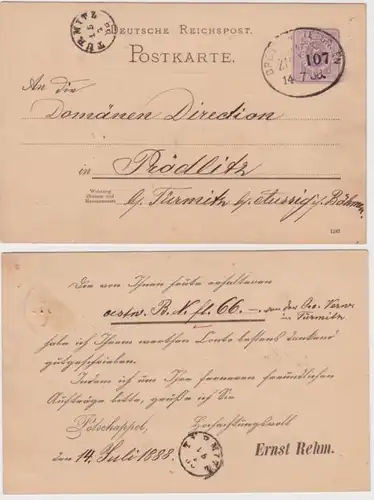 DEUTSCHE REICHSPOST.
POSTKARTE.
TÜRMITZ
107
14 7 88.
An die
Domänen Direction
in Prödlitz
Wohnung
b/ Türmitz b/ Aussig i/ Böhmen
Die von Ihnen heute erhaltenen
oestr. B. N. fl. 66. — von der Oec. Verw.
in Türmitz
habe ich Ihrem werthen Conto bestens dankend
gutgeschrieben.
Indem ich um Ihre ferneren freundlichen
Aufträge bitte, grüße ich Sie
Potschappel, Hochachtungsvoll
den 14. Juli 1888.
TÜRMITZ
Ernst Rehm.